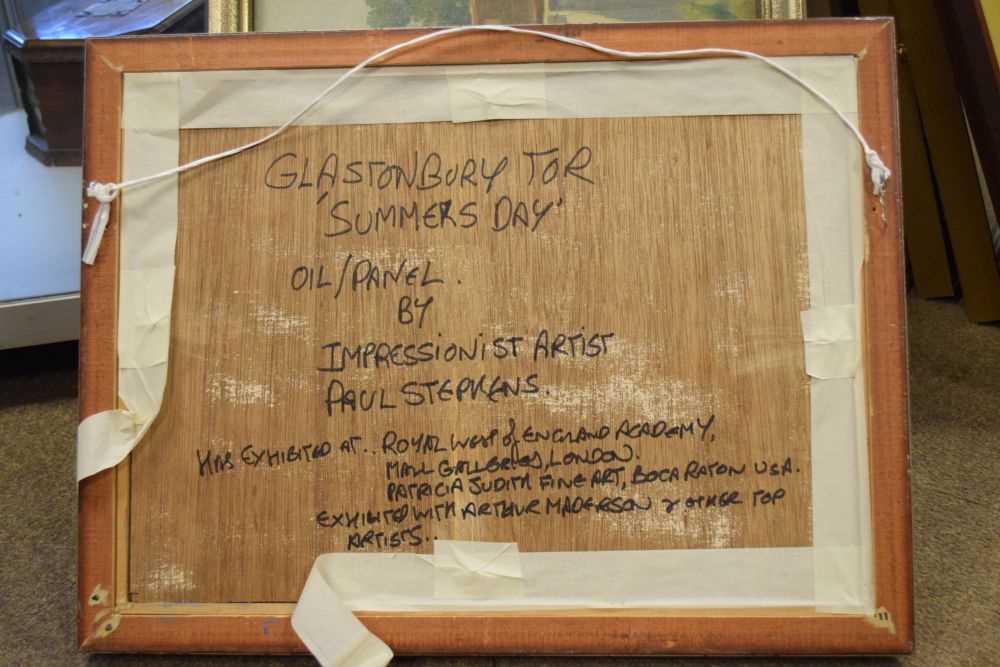 GLASTONBURY TOR
'SUMMERS DAY'
OIL/PANEL.
BY
IMPRESSIONIST ARTIST
PAUL STEPHENS.
HAS EXHIBITED AT.. ROYAL WEST of ENGLAND ACADEMY,
MALL GALLERIES, LONDON.
PATRICIA JUDITH FINE ART, BOCA RATON USA.
EXHIBITED WITH ARTHUR MADERSON & OTHER TOP
ARTISTS..